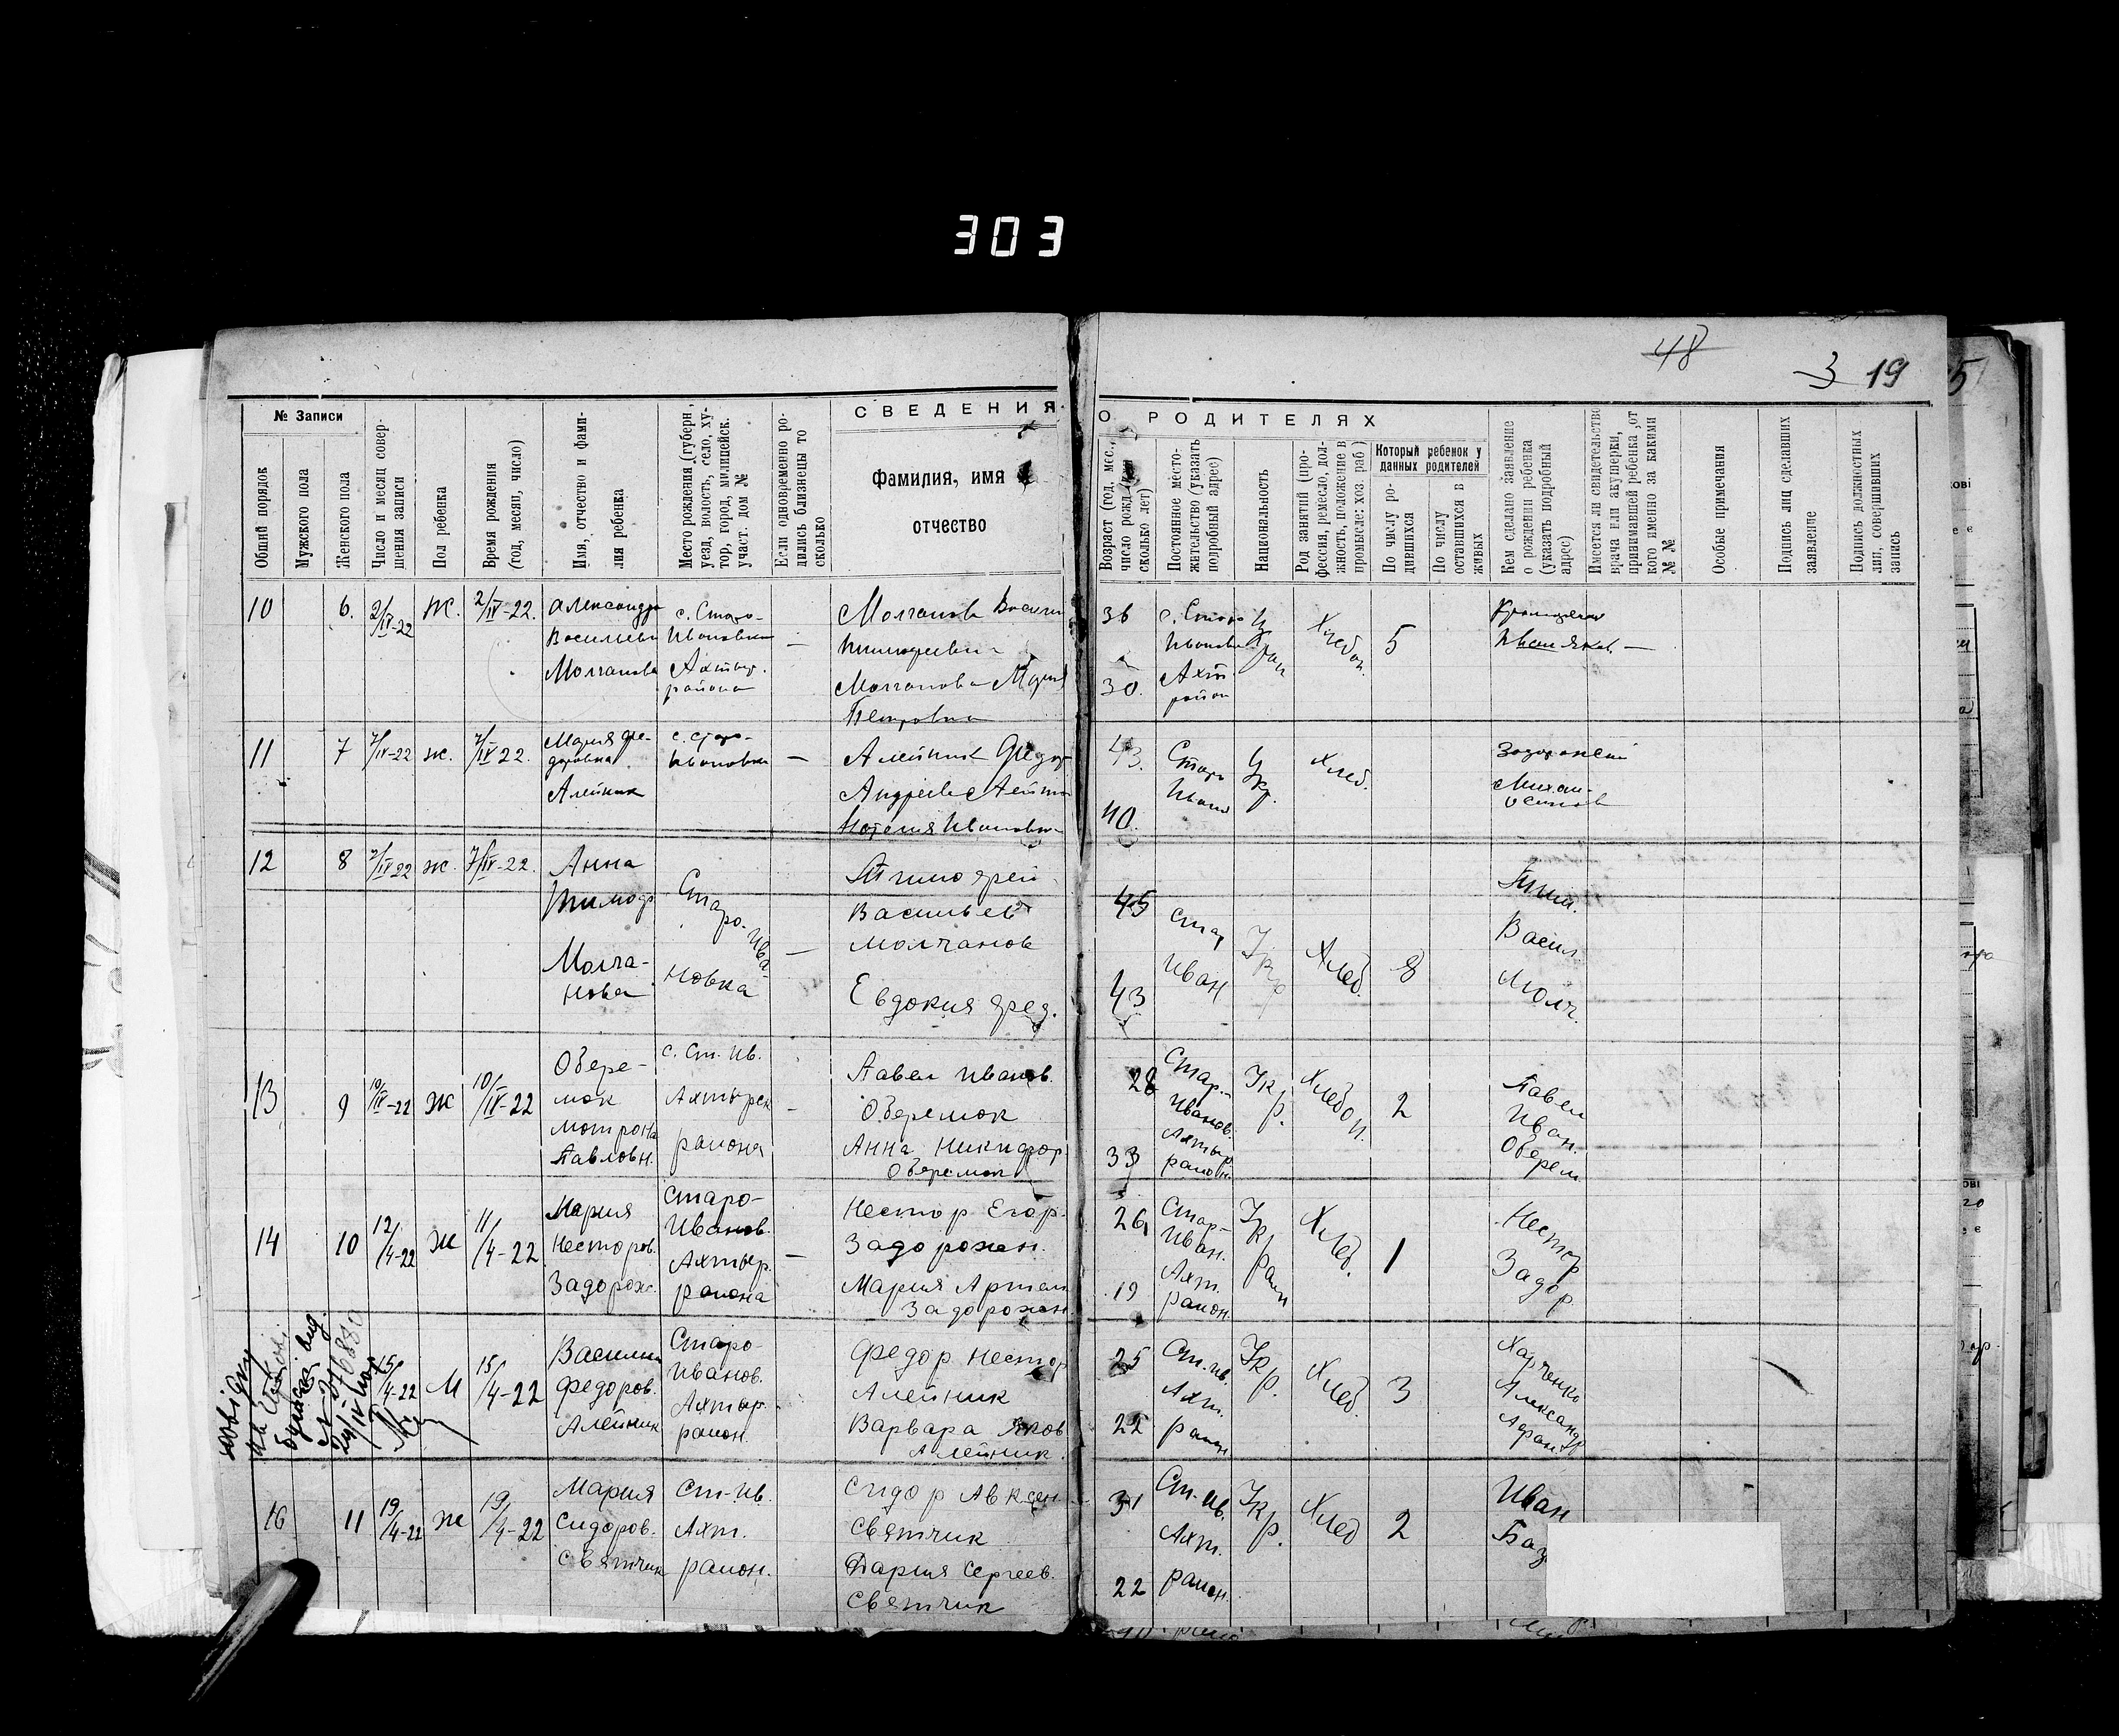 303
48
3 19
5
№ Записи
Общий порядок
Мужского пола
Женского пола
Число и месяц совер-
шения записи
Пол ребенка
Время рождения
(год, месяц, число)
Имя, отчество и фами-
лия ребенка
Место рождения (губерн.,
уезд, волость, село, ху-
тор, город, милицейск.
участ. дом №
Если одновременно ро-
дились близнецы то
сколько
СВЕДЕНИЯ
фамилия, имя
отчество
О РОДИТЕЛЯХ
Возраст (год, мес.,
число рожд
сколько лет)
Постоянное место-
жительство (указать
подробный адрес)
Национальность
Род занятий (про-
фессия, ремесло, дол-
жность, положение в
промысле: хоз. раб.)
Который ребенок у
данных родителей
По числу ро-
дившихся
По числу
оставшихся в
живых
Кем сделано заявление
о рождении ребенка
(указать подробный
адрес)
Имеется ли свидетельство
врача или акушерки,
принимавшей ребенка, от
кого именно за какими
№ №
Особые примечания
Подпись лиц сделавших
заявление
Подпись должностных
лиц, совершивших
запись
10
6.
2/IV-22
Ж.
2/IV-22.
Александра
Васильевн
Молчанова
с. Старо-
Ивановка
Ахтыр.
района
—
Молчанов Васили
Тимофеевич
Молчанова Мария
Петровна
36
30.
с. Старо
Ивановка
Ахт.
район
Украин
Хлебоп.
5
11
7
7/IV-22
ж.
7/IV 22.
Мария Фе-
доровна
Алейник
с. Старо-
Ивановка
—
Алейник Федор
Андреев Алейни
Наталия Ивановна
43.
40.
Старо
Иванов
Укр.
Хлеб.
Задорожний
Михаи-
Осипов
12
8
7/IV 22
ж.
7/IV-22.
Анна
Тимоф
Молча-
нова
Старо-Ива-
новка
—
Тимофей
Васильев
Молчанов
Евдокия Фед.
45
43
Стар
Иван
Укр
Хлеб.
8
Тим.
Васил
Молч.
13
9
10/IV-22
Ж
10/IV-22
Обере-
мок
Мотрона
Павловн.
с. Ст.-Ив.
Ахтырск
района
—
Павел Иванов.
Оберемок
Анна Никифор
Оберемок
28
33
Стар.-
Иванов.
Ахтыр
район.
Укр.
Хлебоп.
2
Павел
Иван.
Оберем
14
10
12/4-22
Ж
11/4-22
Мария
Несторов.
Задорож.
Старо-
Иванов.
Ахтыр.
района
—
Нестор Егор.
Задорожн.
Мария Артам
Задорожн.
26
19
Стар-
Иван.
Ахт.
район.
Украин
Хлеб.
1
Нестор
Задор.
15/4-22
М
15/4-22
Василий
Федоров.
Алейник
Старо-
Иванов.
Ахтыр.
район.
Федор Нестор
Алейник
Варвара Яков
Алейник.
25
22
Ст.-Ив.
Ахт.
район
Укр.
Хлеб.
3
Харченко
Александр
Афан.
16
11
19/4-22
Ж
19/4-22
Мария
Сидоров.
Святчик
Ст-Ив.
Ахт.
район.
Сидор Авксен
Святчик
Дария Сергеев.
Святчик
31
22
Ст.-Ив.
Ахт.
район.
Укр.
Хлеб
2
Иван
Баз